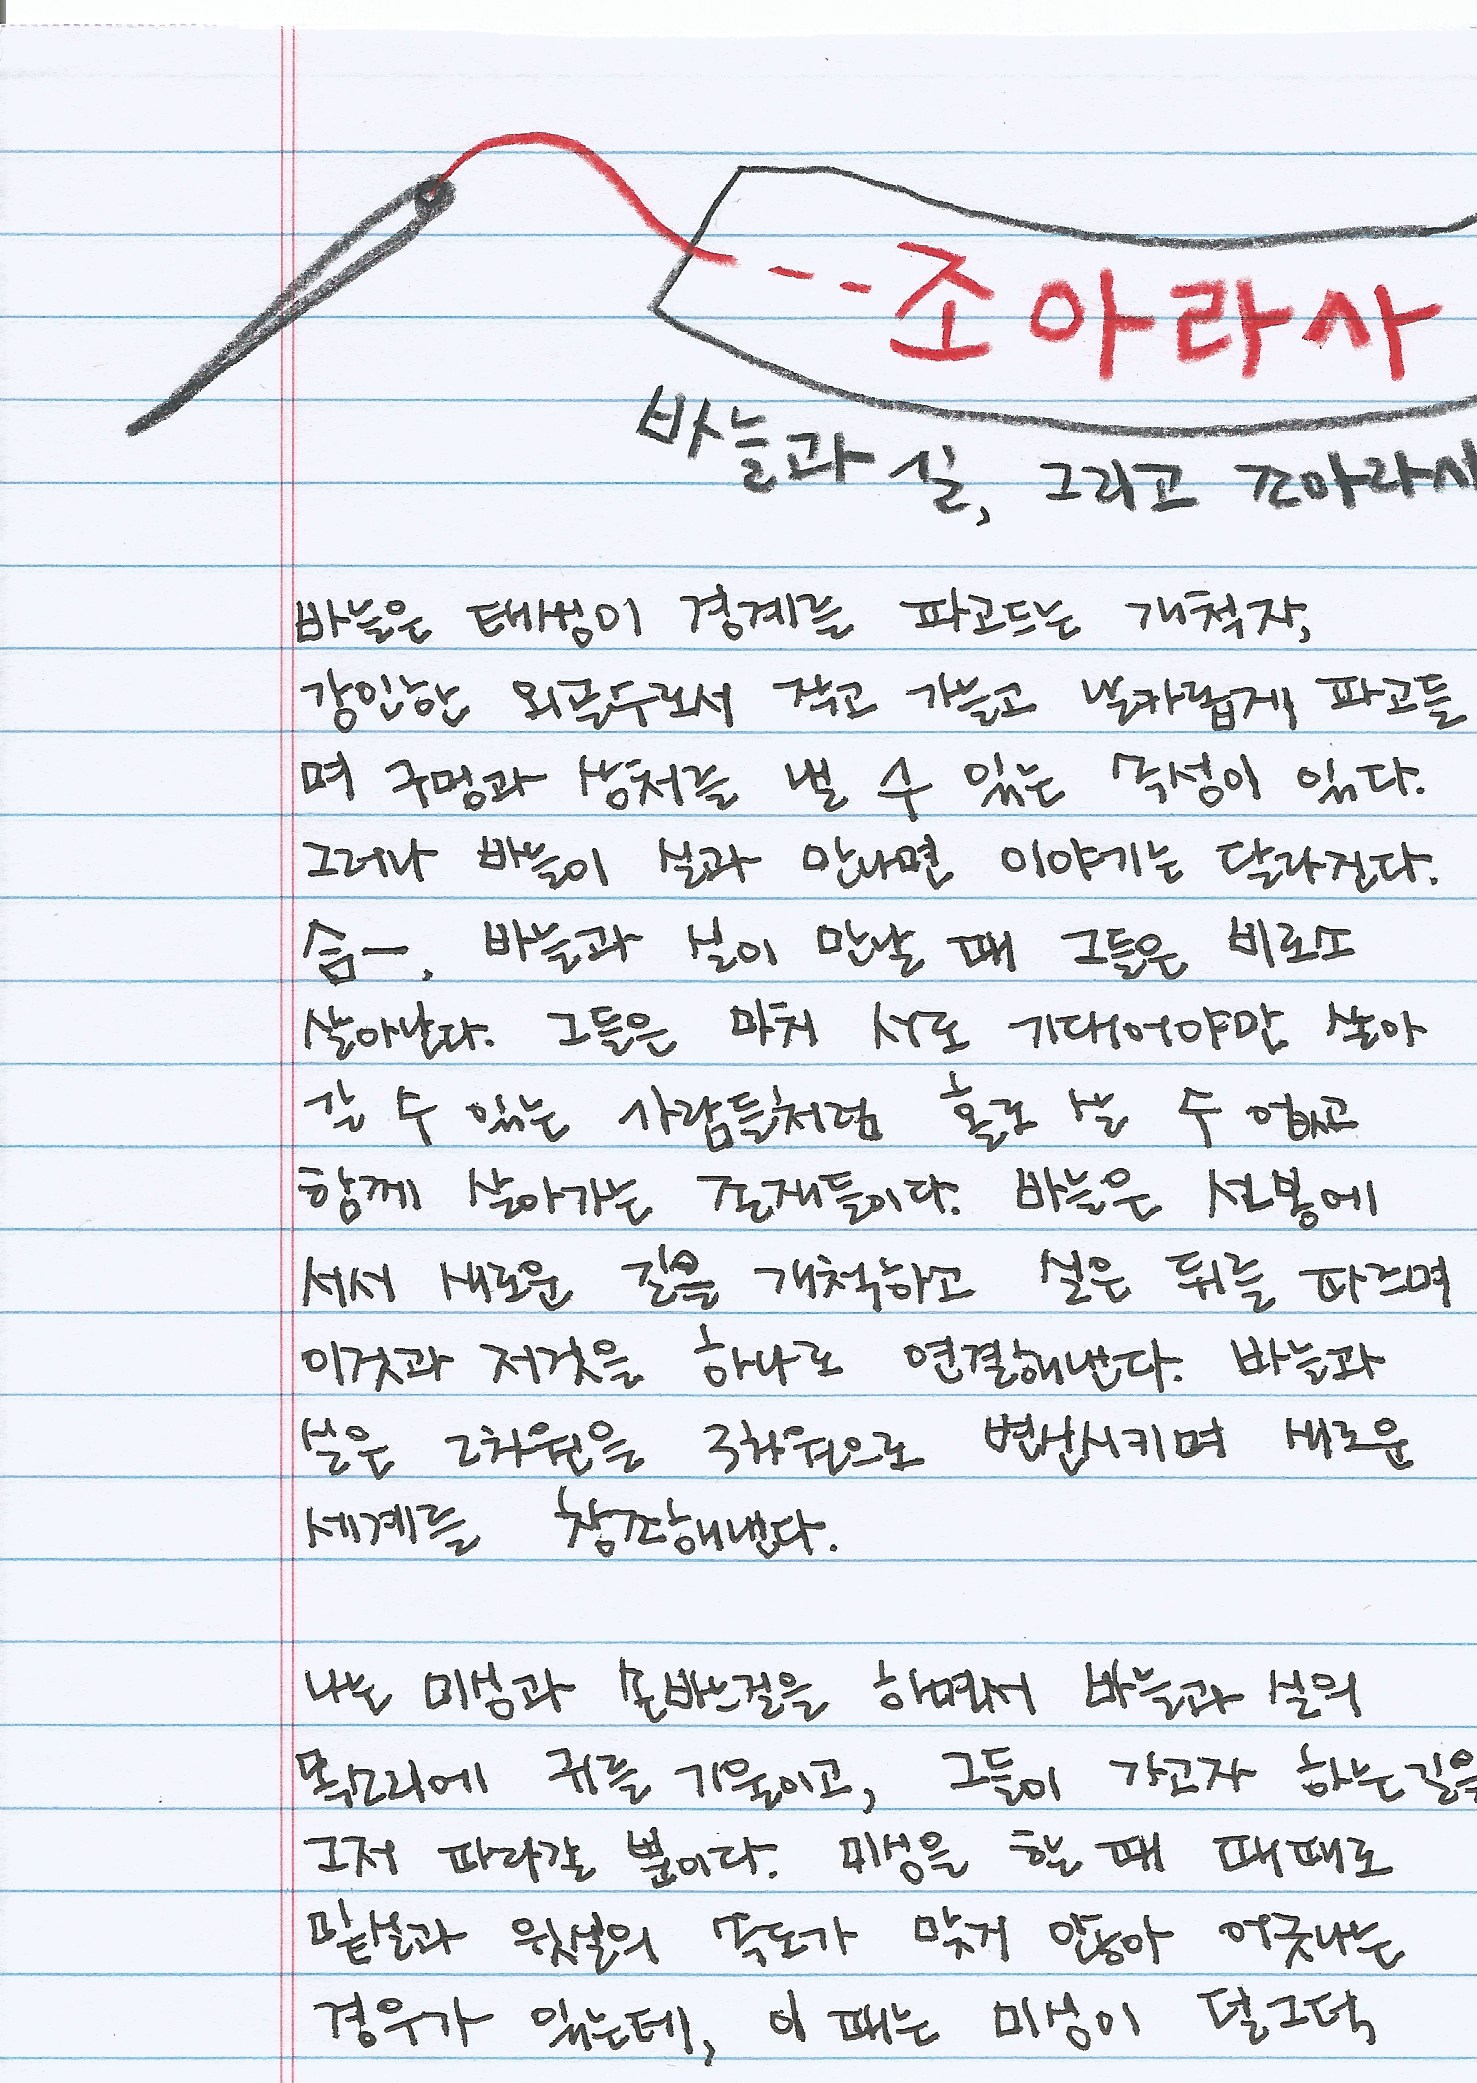 조아라사
바늘과 실, 그리고 조아라사
바늘은 태생이 경계를 파고드는 개척자,
강인한 외골수로서 작고 가늘고 날카롭게 파고들
며 구멍과 상처를 낼 수 있는 속성이 있다.
그러나 바늘이 실과 만나면 이야기는 달라진다.
슴ㅡ. 바늘과 실이 만날 때 그들은 비로소
살아난다. 그들은 마치 서로 기대어야만 살아
갈 수 있는 사람들처럼 홀로 설 수 없고
함께 살아가는 존재들이다. 바늘은 선봉에
서서 새로운 길을 개척하고 실은 뒤를 따르며
이것과 저것을 하나로 연결해낸다. 바늘과
실은 2차원을 3차원으로 변신시키며 새로운
세계를 창조해낸다.
나는 미싱과 손바느질을 하면서 바늘과 실의
목소리에 귀를 기울이고, 그들이 가고자 하는 길을
그저 따라갈 뿐이다. 미싱을 할 때 때때로
밑실과 윗실의 속도가 맞지 않아 어긋나는
경우가 있는데, 이 때는 미싱이 덜그덕